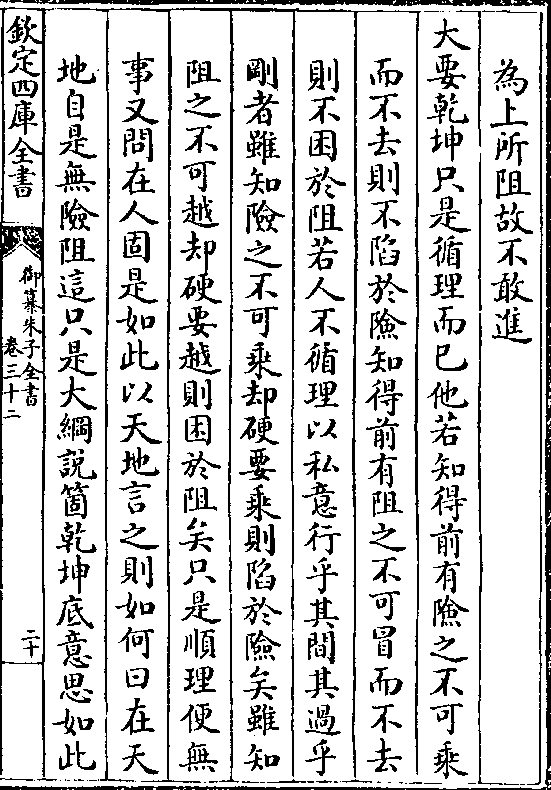 為上所阻故不敢進
大要乾坤只是循理而已他若知得前有險之不可乘
而不去則不陷於險知得前有阻之不可冒而不去
則不困於阻若人不循理以私意行乎其間其過乎
剛者雖知險之不可乘却硬要乘則陷於險矣雖知
阻之不可越却硬要越則困於阻矣只是順理便無
事又問在人固是如此以天地言之則如何曰在天
地自是無險阻這只是大綱說箇乾坤底意思如此
欽定四庫全書
御纂朱子全書
卷三十二
二十